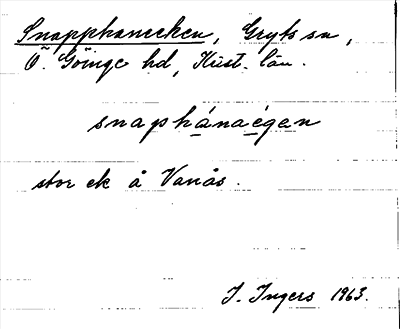 Snapphaneeken, Gryts sn,
Ö. Göinge hd, Krist. län.
snaphánaégen
stor ek å Vanås.
I. Ingers 1963.